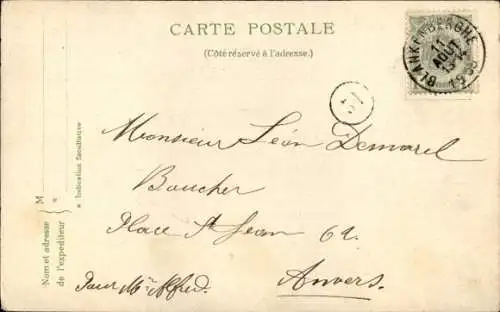 CARTE POSTALE
(Côté réservé à l'adresse.)
BLANKENBERGHE
11
AOUT
Monsieur Léon Demarel
Boucher
Place St Jean 62.
Anvers.
pour Mr Alfred.
Nom et adresse
de l'expéditeur
M
* Indication facultative